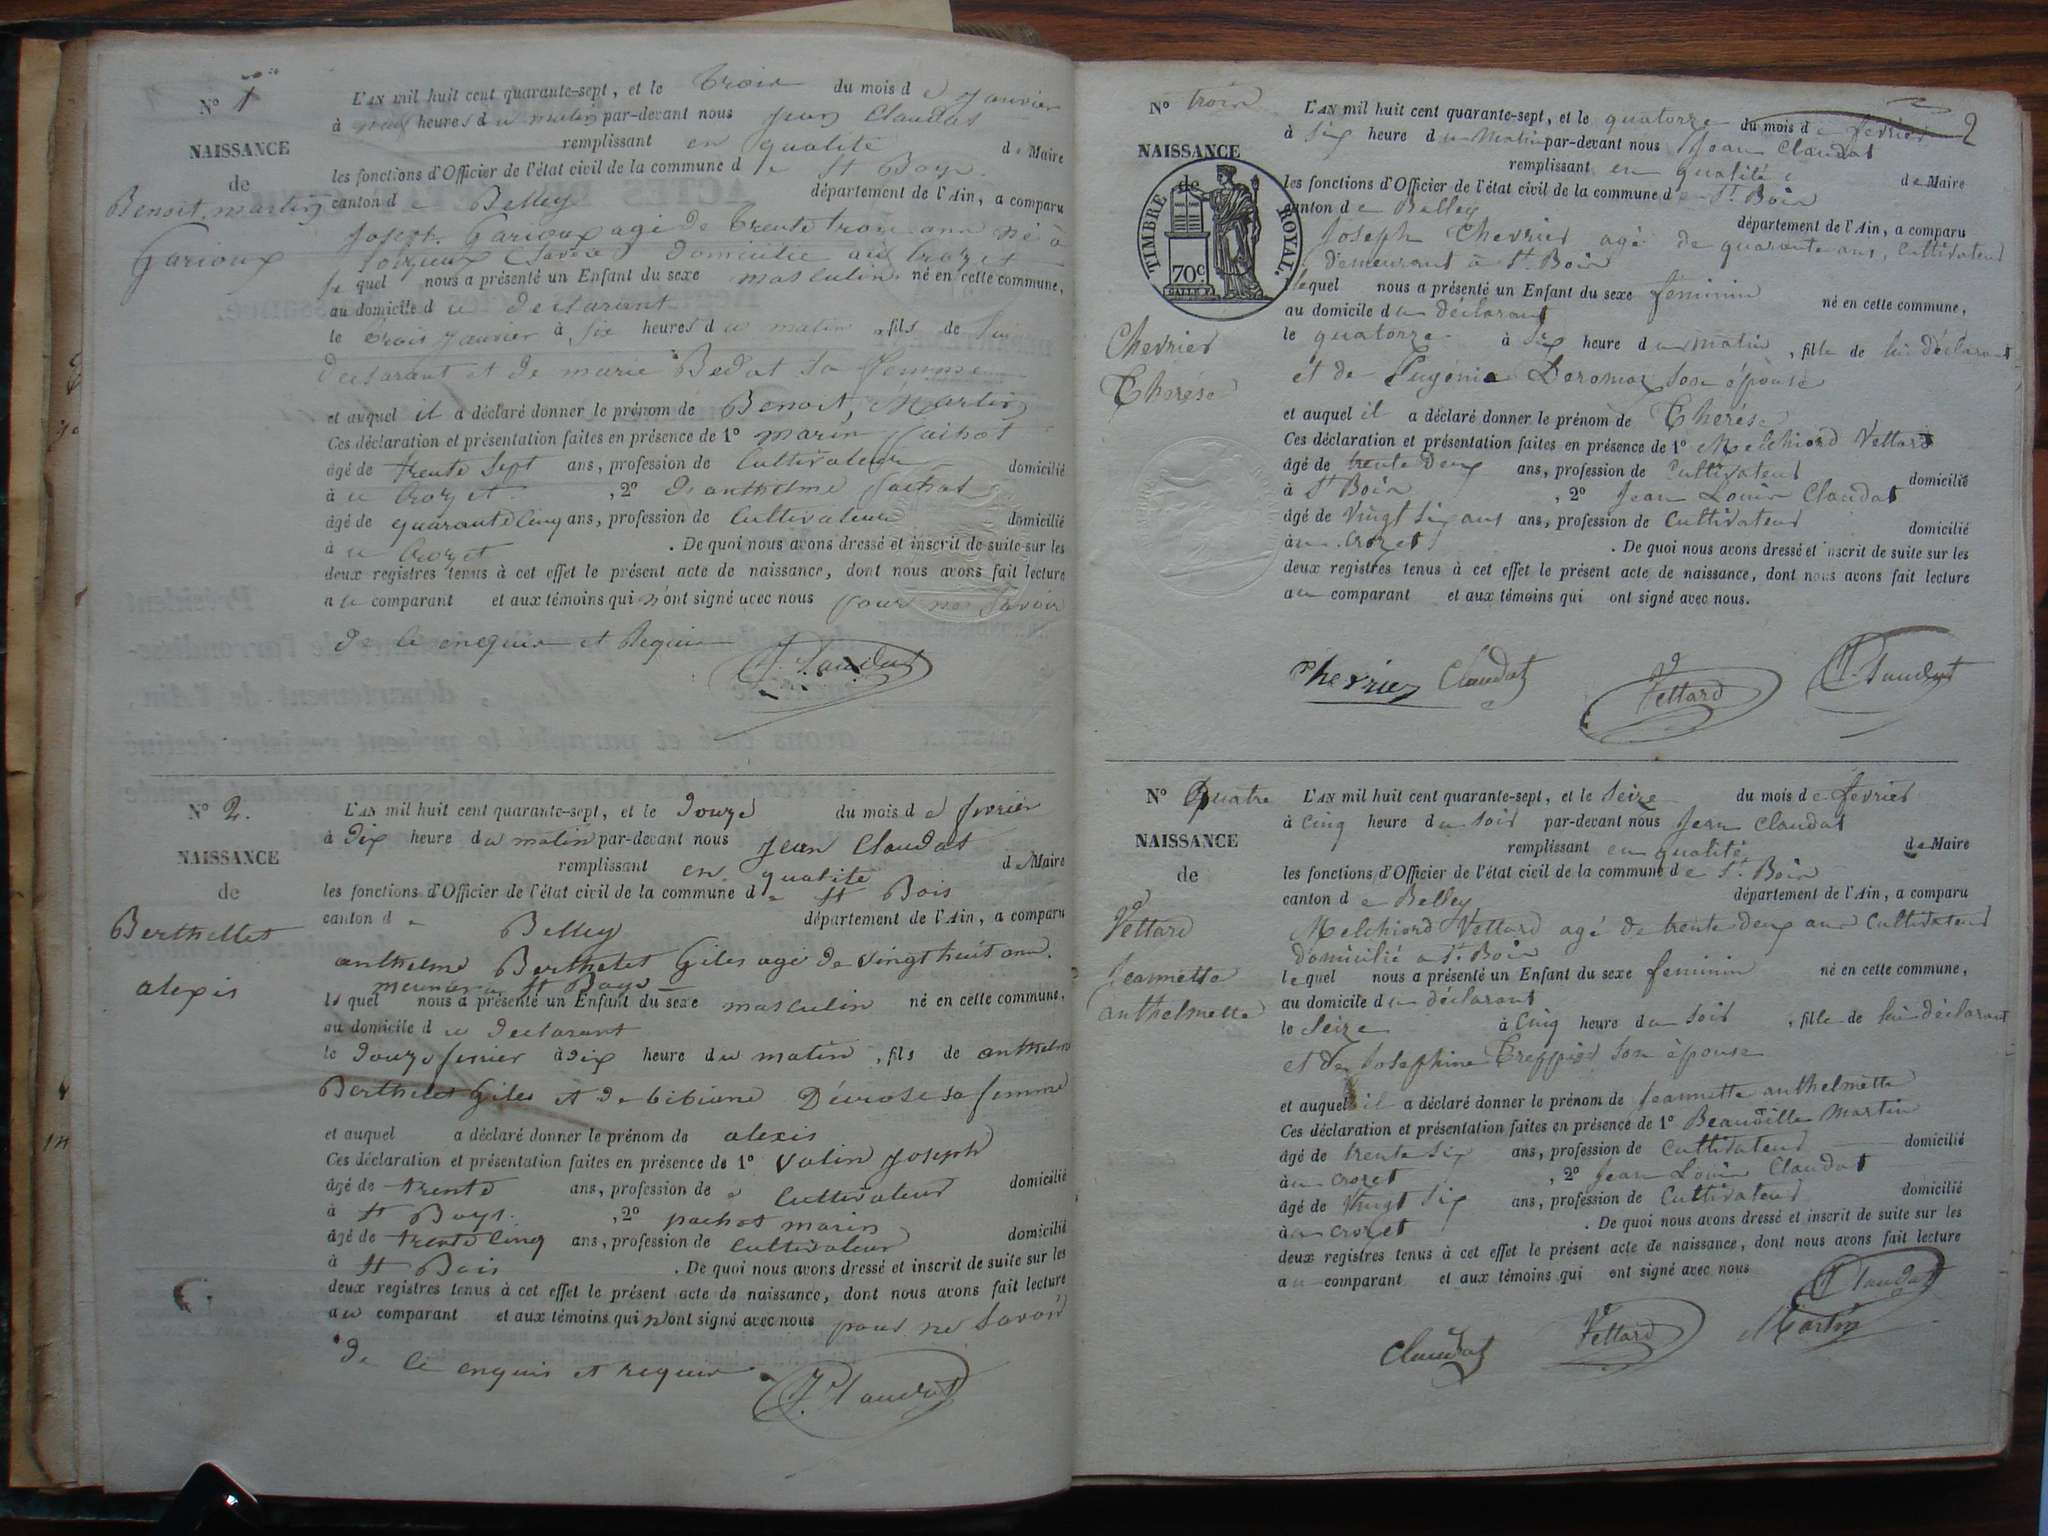 N° 1
NAISSANCE
de
Benoit, martin
Garioux
L'AN mil huit cent quarante-sept, et le trois du mois de janvier
à heures du matin par-devant nous Jean Claudat
remplissant en qualité de Maire
les fonctions d'Officier de l'état civil de la commune de St Boys
canton de Belley département de l'Ain, a comparu
Joseph Garioux agé de trente trois ans né à
(Savoie) domicilié au Crozet
le quel nous a présenté un Enfant du sexe masculin né en cette commune,
au domicile du declarant
le trois janvier à six heures du matin, fils de lui
declarant et de marie Bedat sa femme
et auquel il a déclaré donner le prénom de Benoit, Martin
Ces déclaration et présentation faites en présence de 1° marin pachot
âgé de trente sept ans, profession de Cultivateur domicilié
à u Crozet, 2° anthelme pachot
âgé de quarante cinq ans, profession de Cultivateur domicilié
à u Crozet. De quoi nous avons dressé et inscrit de suite sur les
deux registres tenus à cet effet le présent acte de naissance, dont nous avons fait lecture
a u comparant et aux témoins qui n'ont signé avec nous pour ne savoir
de ce enquis et requis
J. Claudat
N° 2.
NAISSANCE
de
Berthellet
alexis
L'AN mil huit cent quarante-sept, et le douze du mois de fevrier
à dix heure du matin par-devant nous Jean Claudat
remplissant en qualité de Maire
les fonctions d'Officier de l'état civil de la commune de St Bois
canton de Belley département de l'Ain, a comparu
anthelme Berthelet Giles agé de vingt huit ans
meunier a St Boys
le quel nous a présenté un Enfant du sexe masculin né en cette commune,
au domicile du declarant
le douze fevrier à dix heure du matin, fils de anthelme
Berthelet Giles et de bibiane Dévrose sa femme
et auquel a déclaré donner le prénom de alexis
Ces déclaration et présentation faites en présence de 1° Valin Joseph
âgé de trente ans, profession de Cultivateur domicilié
à St Boys, 2° pachot marin
âgé de trente cinq ans, profession de Cultivateur domicilié
à St Bois. De quoi nous avons dressé et inscrit de suite sur les
deux registres tenus à cet effet le présent acte de naissance, dont nous avons fait lecture
au comparant et aux témoins qui n'ont signé avec nous pour ne Savoir
de ce enquis et requis
J. Claudat
2
N° trois
NAISSANCE
de
TIMBRE ROYAL.
70c
Chevrier
Thérèse
L'AN mil huit cent quarante-sept, et le quatorze du mois de fevrier
à six heure du Matin par-devant nous Jean Claudat
remplissant en qualité de Maire
les fonctions d'Officier de l'état civil de la commune de St Bois
canton de Belley département de l'Ain, a comparu
Joseph Chevrier agé de quarante ans, Cultivateur
demeurant à St Bois
lequel nous a présenté un Enfant du sexe féminin né en cette commune,
au domicile du déclarant
le quatorze à six heure du matin, fille de lui déclarant
et de Eugénie Deromaz son épouse
et auquel il a déclaré donner le prénom de Thérèse
Ces déclaration et présentation faites en présence de 1° Melchiord Vettard
âgé de trente deux ans, profession de Cultivateur domicilié
à St Bois, 2° Jean Louis Claudat
âgé de vingt six ans ans, profession de Cultivateur domicilié
à u crozet. De quoi nous avons dressé et inscrit de suite sur les
deux registres tenus à cet effet le présent acte de naissance, dont nous avons fait lecture
au comparant et aux témoins qui ont signé avec nous.
Chevrier Claudat Vettard J. Claudat
N° Quatre
NAISSANCE
de
Vettard
Jeannette
anthelmette
L'AN mil huit cent quarante-sept, et le seize du mois de fevrier
à cinq heure du soir par-devant nous Jean Claudat
remplissant en qualité de Maire
les fonctions d'Officier de l'état civil de la commune de St Bois
canton de Belley département de l'Ain, a comparu
Melchiord Vettard agé de trente deux ans Cultivateur
domicilié a St Bois
lequel nous a présenté un Enfant du sexe feminin né en cette commune,
au domicile du déclarant
le seize à cinq heure du soir, fille de lui déclarant
et de Josephine Treppied son épouse
et auquel il a déclaré donner le prénom de Jeannette anthelmette
Ces déclaration et présentation faites en présence de 1° Beauville Martin
âgé de trente six ans, profession de Cultivateur domicilié
à u crozet, 2° Jean Louis Claudat
âgé de vingt six ans, profession de Cultivateur domicilié
à u crozet. De quoi nous avons dressé et inscrit de suite sur les
deux registres tenus à cet effet le présent acte de naissance, dont nous avons fait lecture
au comparant et aux témoins qui ont signé avec nous
J. Claudat
Claudat Vettard Martin